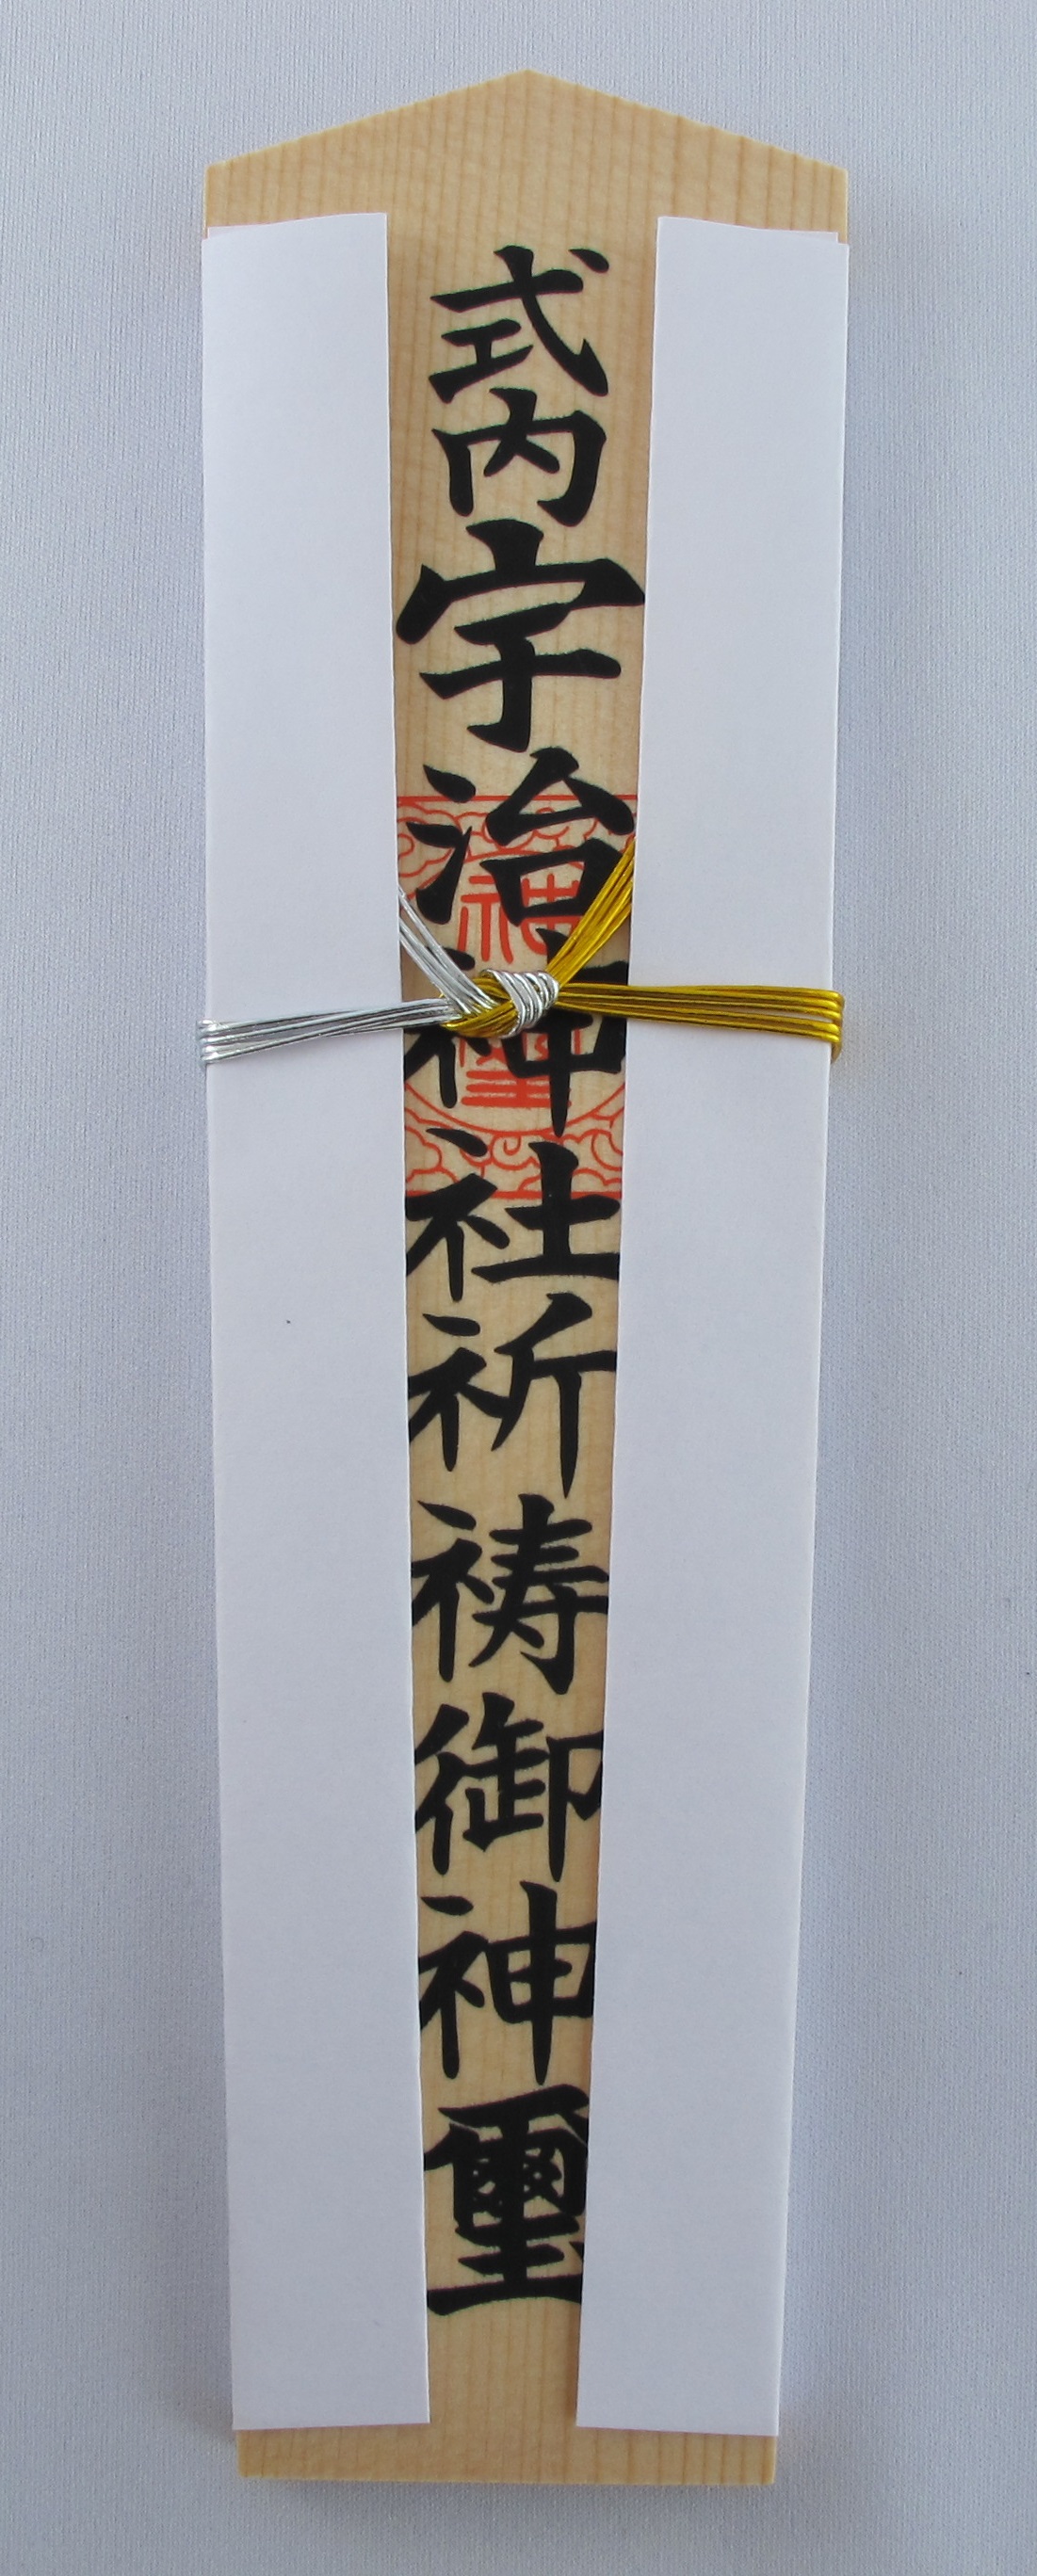 式内宇治神社祈祷御神璽
神璽